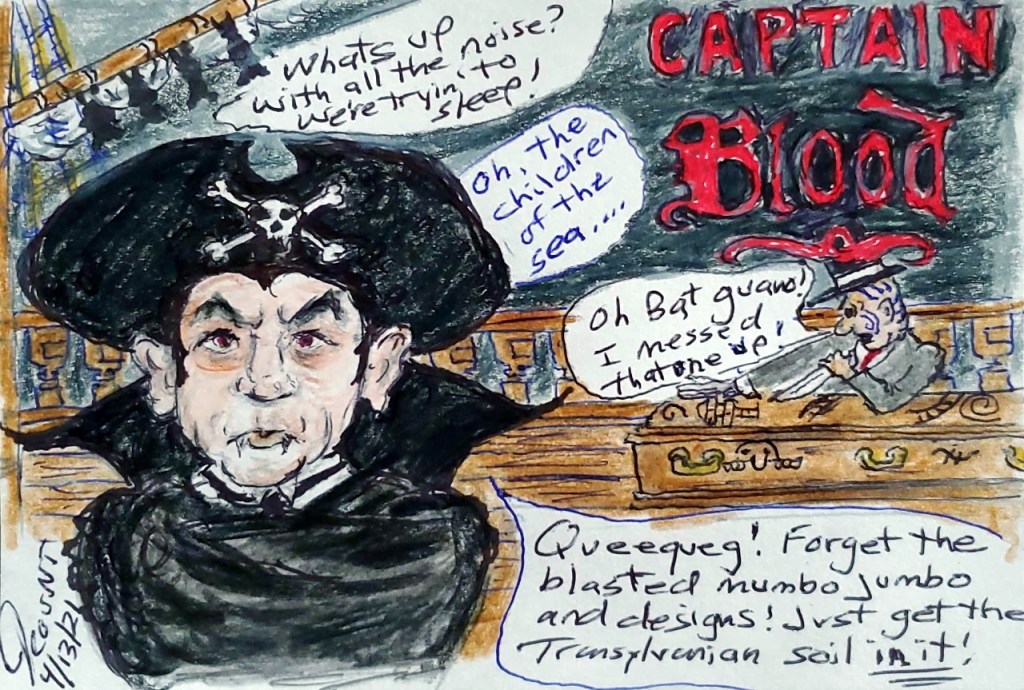 Whats up
with all the noise?
We're tryin' to
sleep!
CAPTAIN
Blood
Oh, the
children
of the
sea...
Oh Bat guano!
I messed
that one up!
Queequeg! Forget the
blasted mumbo jumbo
and designs! Just get the
Transylvanian soil in it!
4/13/21